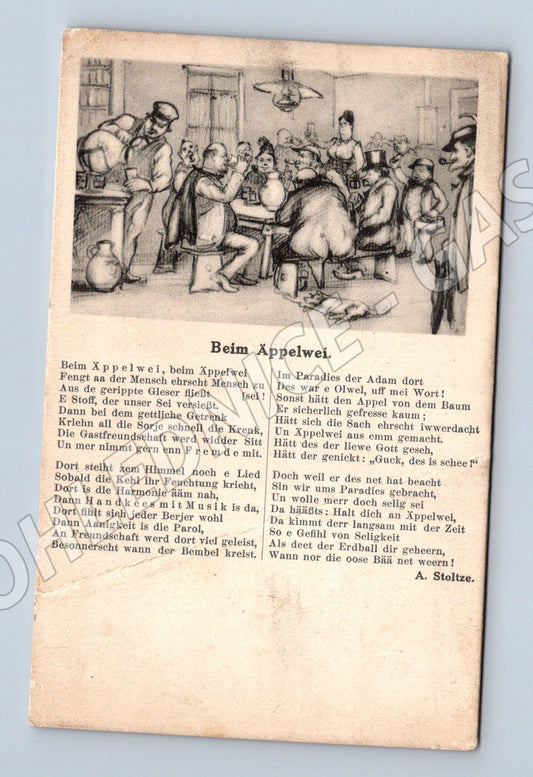 Beim Äppelwei.
Beim Äppelwei, beim Äppelwei
Fengt aa der Mensch ehrscht Mensch zu
Aus de gerippte Gleser fließt. [sei!
E Stoff, der unser Sei versießt.
Dann bei dem gettliche Getrenk
Kriehn all die Sorje schnell die Krenk,
Die Gastfreundschaft werd widder Sitt
Un mer nimmt gern enn Fremde mit.
Dort steiht zem Himmel noch e Lied
Sobald die Kehl ihr Feuchtung krieht,
Dort is die Harmonie ääm nah,
Dann Handkees mit Musik is da,
Dort fihlt sich jeder Berjer wohl
Dann Aanigkeit is die Parol,
An Freundschaft werd dort viel geleist,
Besonnerscht wann der Bembel kreist.
Im Paradies der Adam dort
Des war e Olwel, uff mei Wort!
Sonst hätt den Appel von dem Baum
Er sicherlich gefresse kaum;
Hätt sich die Sach ehrscht iwwerdacht
Un Äppelwei aus emm gemacht.
Hätt des der liewe Gott geseh,
Hätt der genickt: „Guck, des is schee!"
Doch weil er des net hat beacht
Sin wir ums Paradies gebracht,
Un wolle merr doch selig sei
Da hääßts: Halt dich an Äppelwei,
Da kimmt derr langsam mit der Zeit
So e Gefihl von Seligkeit
Als deet der Erdball dir geheern,
Wann nor die oose Bää net weern!
A. Stoltze.